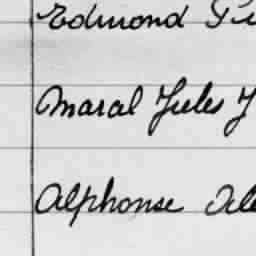 Edmond
Maral Jules J
Alphonse